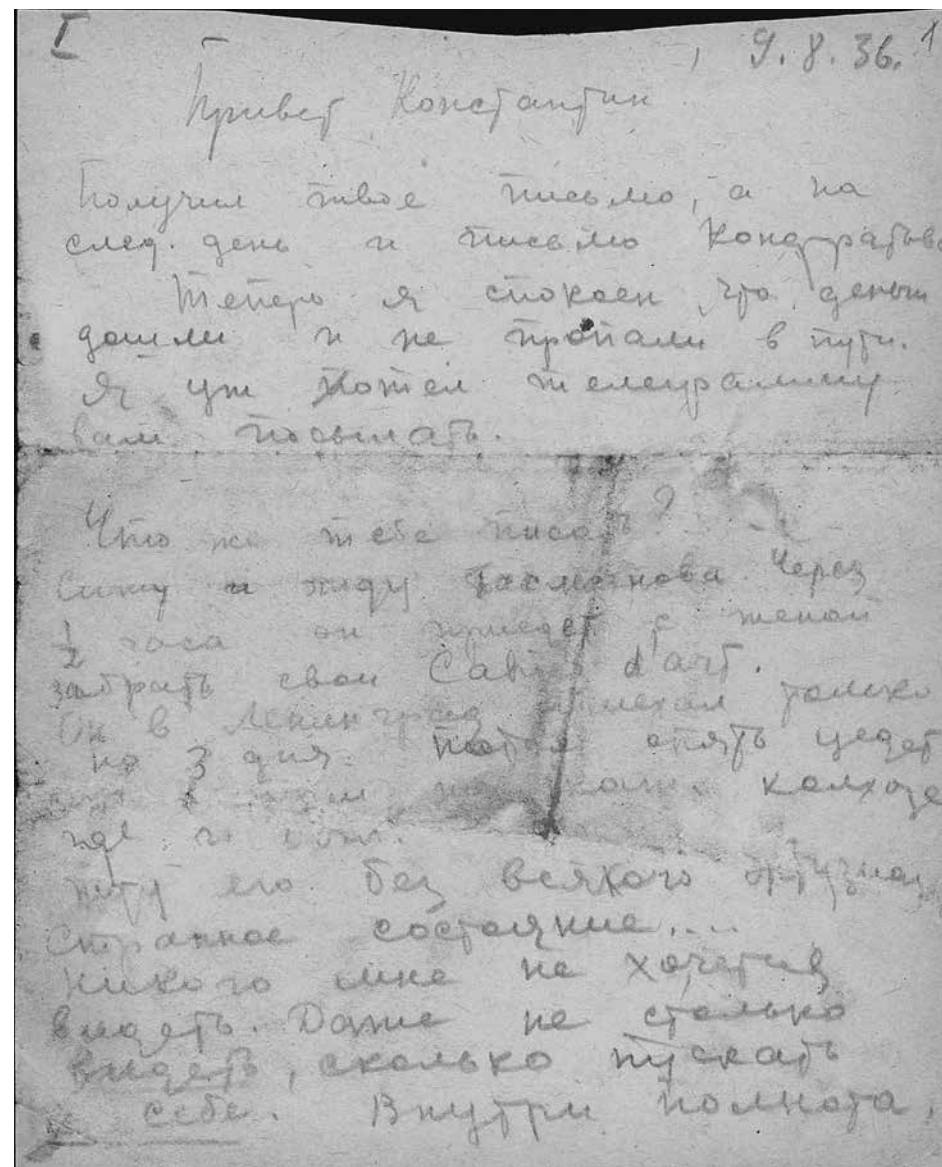 I
9.8.36. 1
Привет Константин
Получил твое письмо, а на
след. день и письмо Кондратьев
Теперь я спокоен, что деньги
дошли и не пропали в пути.
Я уж хотел телеграмму
вам посылать.
Что же тебе писать?
Сижу и жду Басманова. Через
1/2 часа он приедет с женой
забрать свои Cahiers d'art.
Он в Ленинград приехал только
на 3 дня. Потом опять уедет
колхозе
где и был.
Жду его без всякого энтузиаз
Странное состояние....
Никого мне не хочется
видеть. Даже не столько
видеть, сколько пускать
к себе. Внутри полнота,